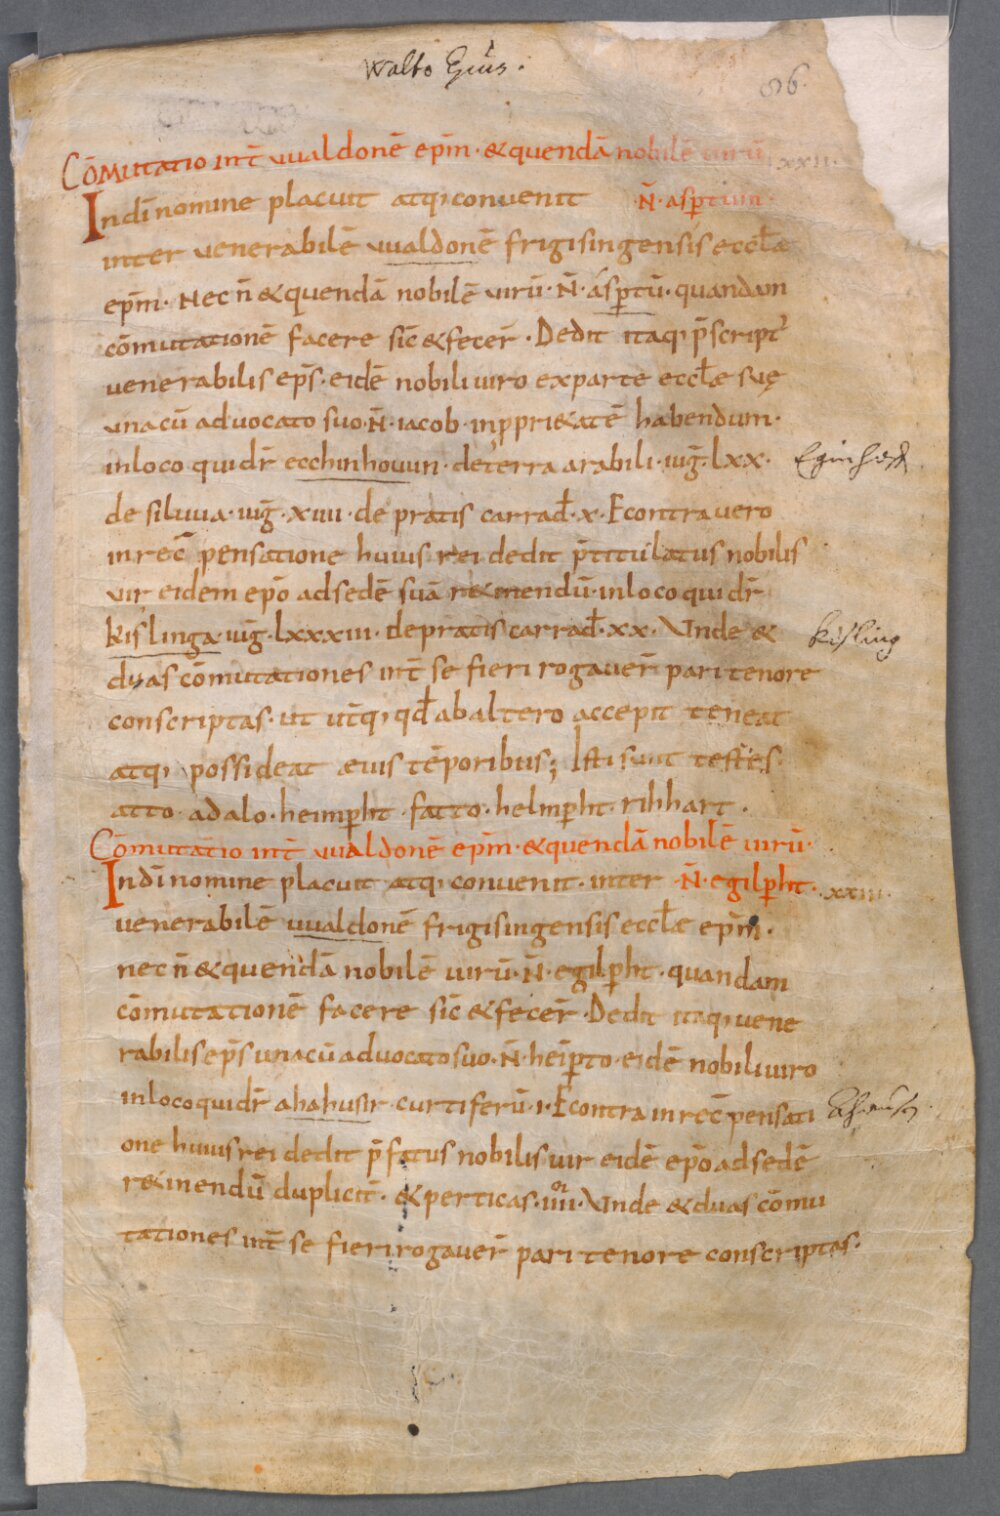 Walto Epūs.
86.
Cōmutatio int̄ vualdonē ep̄m · & quendā nobilē uirū xxii.
In dī nomine placuit atq; convenit N̄ · asp̄tum ·
inter venerabilē vualdonē frigisingensis eccł̄ę
ep̄m · Nec n̄ & quendā nobilē virū · N̄ · asp̄tū · quandam
cōmutationē facere sic̄ & fecer̄ · Dedit itaq; p̄script᾿
venerabilis ep̄s · eidē nobili uiro ex parte eccłæ suę
una cū advocato suo · N̄ · iacob · in ꝓpri&atē habendum ·
in loco qui dr̄ ecchinhouun · de terra arabili · iuḡ · lxx ·
Eginhofen
de siluua · iuḡ · xiiii · de pratis carrad̄ · x · Econtra vero
in rec̄ pensatione huius rei dedit p̄titulatus nobilis
vir eidem ep̄o ad sedē suā r&inendū · in loco qui dr̄
kislinga · iuḡ · lxxxiii · de pratis carrad̄ · xx · Unde &
Kisling
duas cōmutationes int̄ se fieri rogauer̄ pari tenore
conscriptas · ut ut̄q; qd̄ ab altero accepit teneat
atq; possideat ævis tēporibus; Isti sunt testes ·
atto · adalo · heimp̄ht · fatto · helmp̄ht · rihhart ·
Cōmutatio int̄ vualdonē ep̄m · & quendā nobilē uirū ·
In dī nomine placuit atq; convenit · inter N̄ · egilp̄ht · xxiii.
venerabilē vvaldonē frigisingensis eccłæ ep̄m ·
nec n̄ & quendā nobilē uirū · N̄ · egilp̄ht · quandam
cōmutationē facere sic̄ & fecer̄ · Dedit itaq; vene
rabilis ep̄s una cū advocato suo · N̄ · heip̄to · eidē nobili uiro
in loco qui dr̄ ahahusir · curtiferū · i · Econtra in rec̄ pensati
Ahausen
one huius rei dedit p̄fatus nobilis uir eidē ep̄o ad sedē
r&inendū duplicit̄ · & perticas · iiii<sup>or</sup> · Unde & duas cōmu
tationes int̄ se fieri rogauer̄ pari tenore conscriptas ·